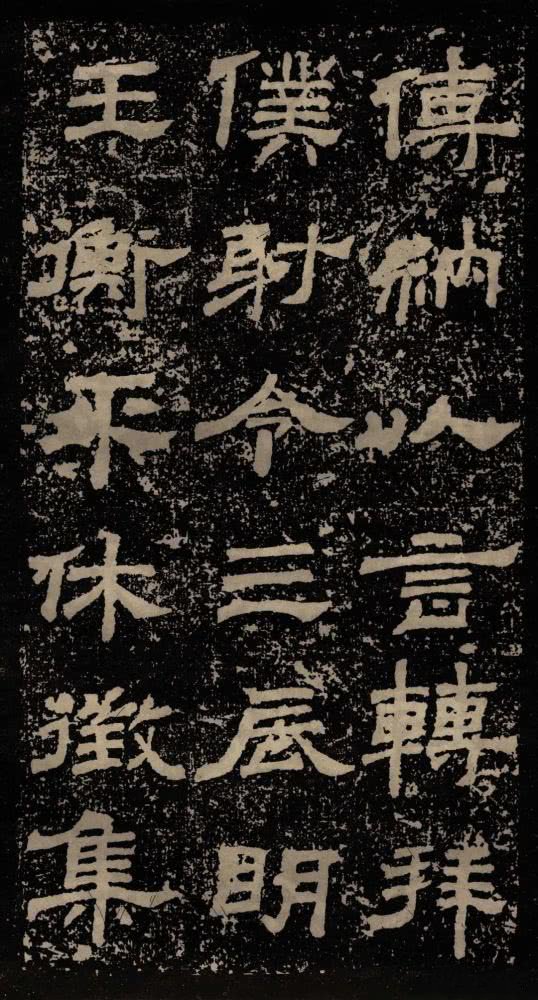 傅納以言轉拜
僕射令三辰明
王衡平休徵集